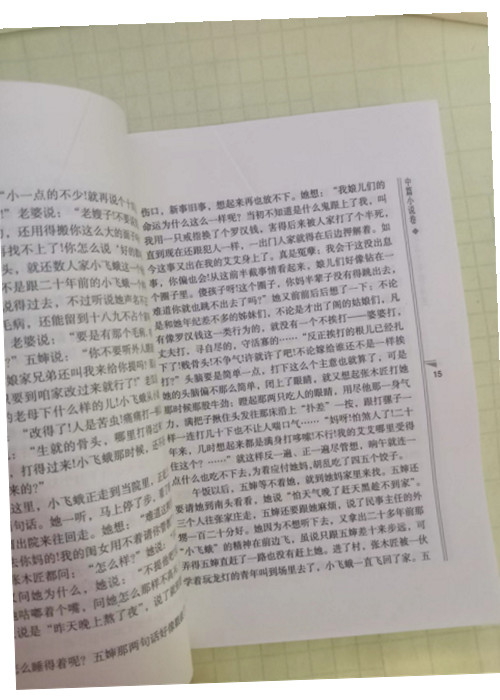 “小一点的不少!就再说个
!”老婆说:“老嫂子!不要说
,还用得搬你这么大的面子
再找不上了!你怎么说‘好的
头,就还数人家小飞蛾这一个
不是跟二十年前的小飞蛾一
说得过去,不过听说她声名不
毛病,还能留到十八九不占个
老婆说:“要是有那个毛病,
?”五婶说:“你不要听外人
娘家兄弟还叫我来给你提哩!
只要到咱家改过来就行了?”老
的老母下什么样的儿!小飞蛾从
“改得了!人是苦虫!痛痛打一
:“生就的骨头,哪里打得过来
,打得过来!小飞蛾那时候,还不
来的?”
这里,小飞蛾正走到当院里,正
句话。她一听,马上停了步,看
出院来往回走。她想:“难道这
去你妈的!我的闺女用不着请你
张木匠都问:“怎么样?”她说:“
又问她为什么,她说:“不提他
咕嘟着个嘴,问她怎么那样不高
说是“昨天晚上熬了夜”,说了
怎么睡得着呢?五婶那两句话好像
伤口,新事旧事,想起来再也放不下。她想:“我娘儿们的
命运为什么这么一样呢?当初不知道是什么鬼跟上了我,叫
我用一只戒指换了个罗汉钱,害得后来被人家打了个半死,
直到现在还跟犯人一样,一出门人家就得在后边押解着。如
今这事又出在我的艾艾身上了。真是冤孽:我会干这没出息
事,你偏也会!从这前半截事情看起来,娘儿们好像钻在一
个圈子里。傻孩子呀!这个圈子,你妈半辈子没有得跳出去,
难道你就也跳不出去了吗?”她又前前后后想了一下:不论
是和她年纪差不多的姊妹们,不论是才出了阁的姑娘们,凡
有像罗汉钱这一类行为的,就没有一个不挨打——婆婆打,
丈夫打,寻自尽的,守活寡的……“反正挨打的根儿已经扎
下了!贱骨头!不争气!许就许了吧!不论嫁给谁还不是一样挨
打?”头脑要是简单一点,打下这么个主意也就算了,可是
她的头脑偏不那么简单,闭上了眼睛,就又想起张木匠打她
那时候那股牛劲:瞪起那两只吃人的眼睛,用尽他那一身气
力,满把子揪住头发往那床沿上“扑差”一按,跟打骡子一
样一连打几十下也不让人喘口气……“妈呀!怕煞人了!二十
年来,几时想起来都是满身打哆嗦!不行!我的艾艾哪里受得
住这个?……”就这样反一遍、正一遍尽管想,晌午就连一
点什么也吃不下去,为着应付她妈,胡乱吃了四五个饺子。
午饭以后,五婶等不着她,就到她妈家里来找。五婶还
要请她到南头看看,她说“怕天气晚了赶天黑趁不到家”。
三个人往张家庄走,五婶还要跟她麻烦,说了民事主任的外
甥一百二十分好。她因为不想听下去,又拿出二十多年前那
“小飞蛾”的精神在前边飞,虽说只跟五婶差十来步远,可
弄得五婶直赶了一路也没有赶上她。进了村,张木匠被一伙
学着玩龙灯的青年叫到场里去了,小飞蛾一直飞回了家。五
中篇小说卷
15